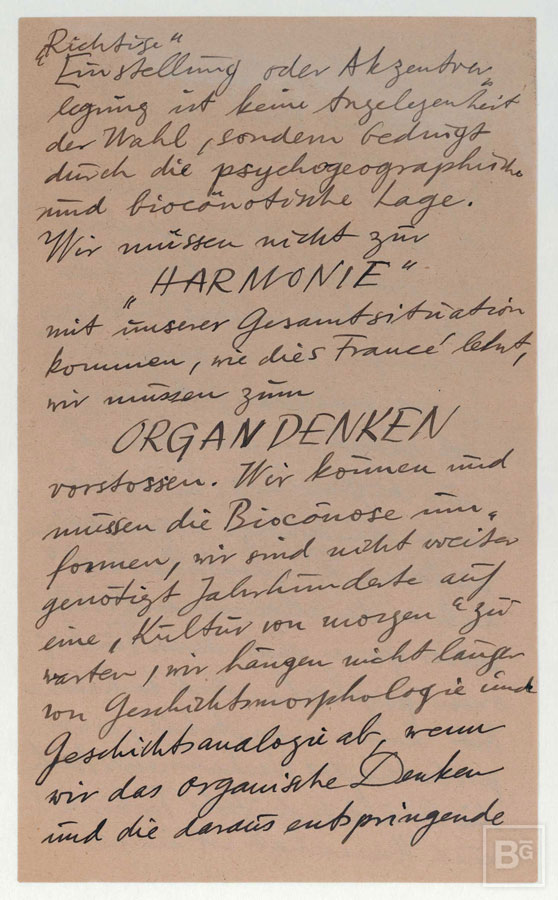 „Richtige“
Einstellung oder Akzentver„
legung ist keine Angelegenheit
der Wahl, sondern bedingt
durch die psychogeographische
und biocönotische Lage.
Wir müssen nicht zur
„HARMONIE“
mit unserer Gesamtsituation
kommen, wie dies Francé lehrt,
wir müssen zum
ORGANDENKEN
vorstossen. Wir können und
müssen die Biocönose um„
formen, wir sind nicht weiter
genötigt Jahrhunderte auf
eine „Kultur von morgen“ zu
warten, wir hängen nicht länger
von Geschichtsmorphologie und
Geschichtsanalogie ab, wenn
wir das organische Denken
und die daraus entspringende
BG